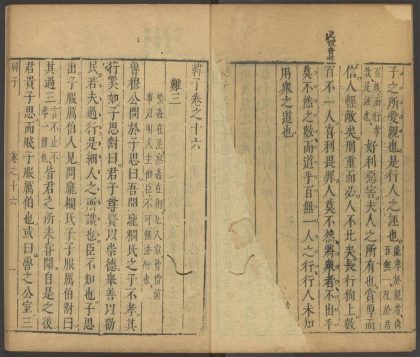 子之所愛親也是行人之誣也能孝於親者尚百無一況於君
百族而行孝哉是誣也好利惡害夫人之所有也賞厚而
信人輕敵矣刑重而必人不北矣長行徇上數
百不一人喜利畏罪人莫不然將衆者不出乎
莫不然之數而道乎百無一人之行行人未知
用衆之道也
韓子卷之十六
難三
魯穆公問於子思曰吾聞龐𥳽氏之子不孝其
行奚如子思對曰君子尊賢以崇德舉善以勸
民若夫過行是細人之所識也臣不知也子思
出子服厲伯入見問龐𥳽氏子子服厲伯對曰
其過三皆君之所未嘗聞自是之後
君貴子思而賤子服厲伯也或曰魯之公室三
韓子 卷之十六 一